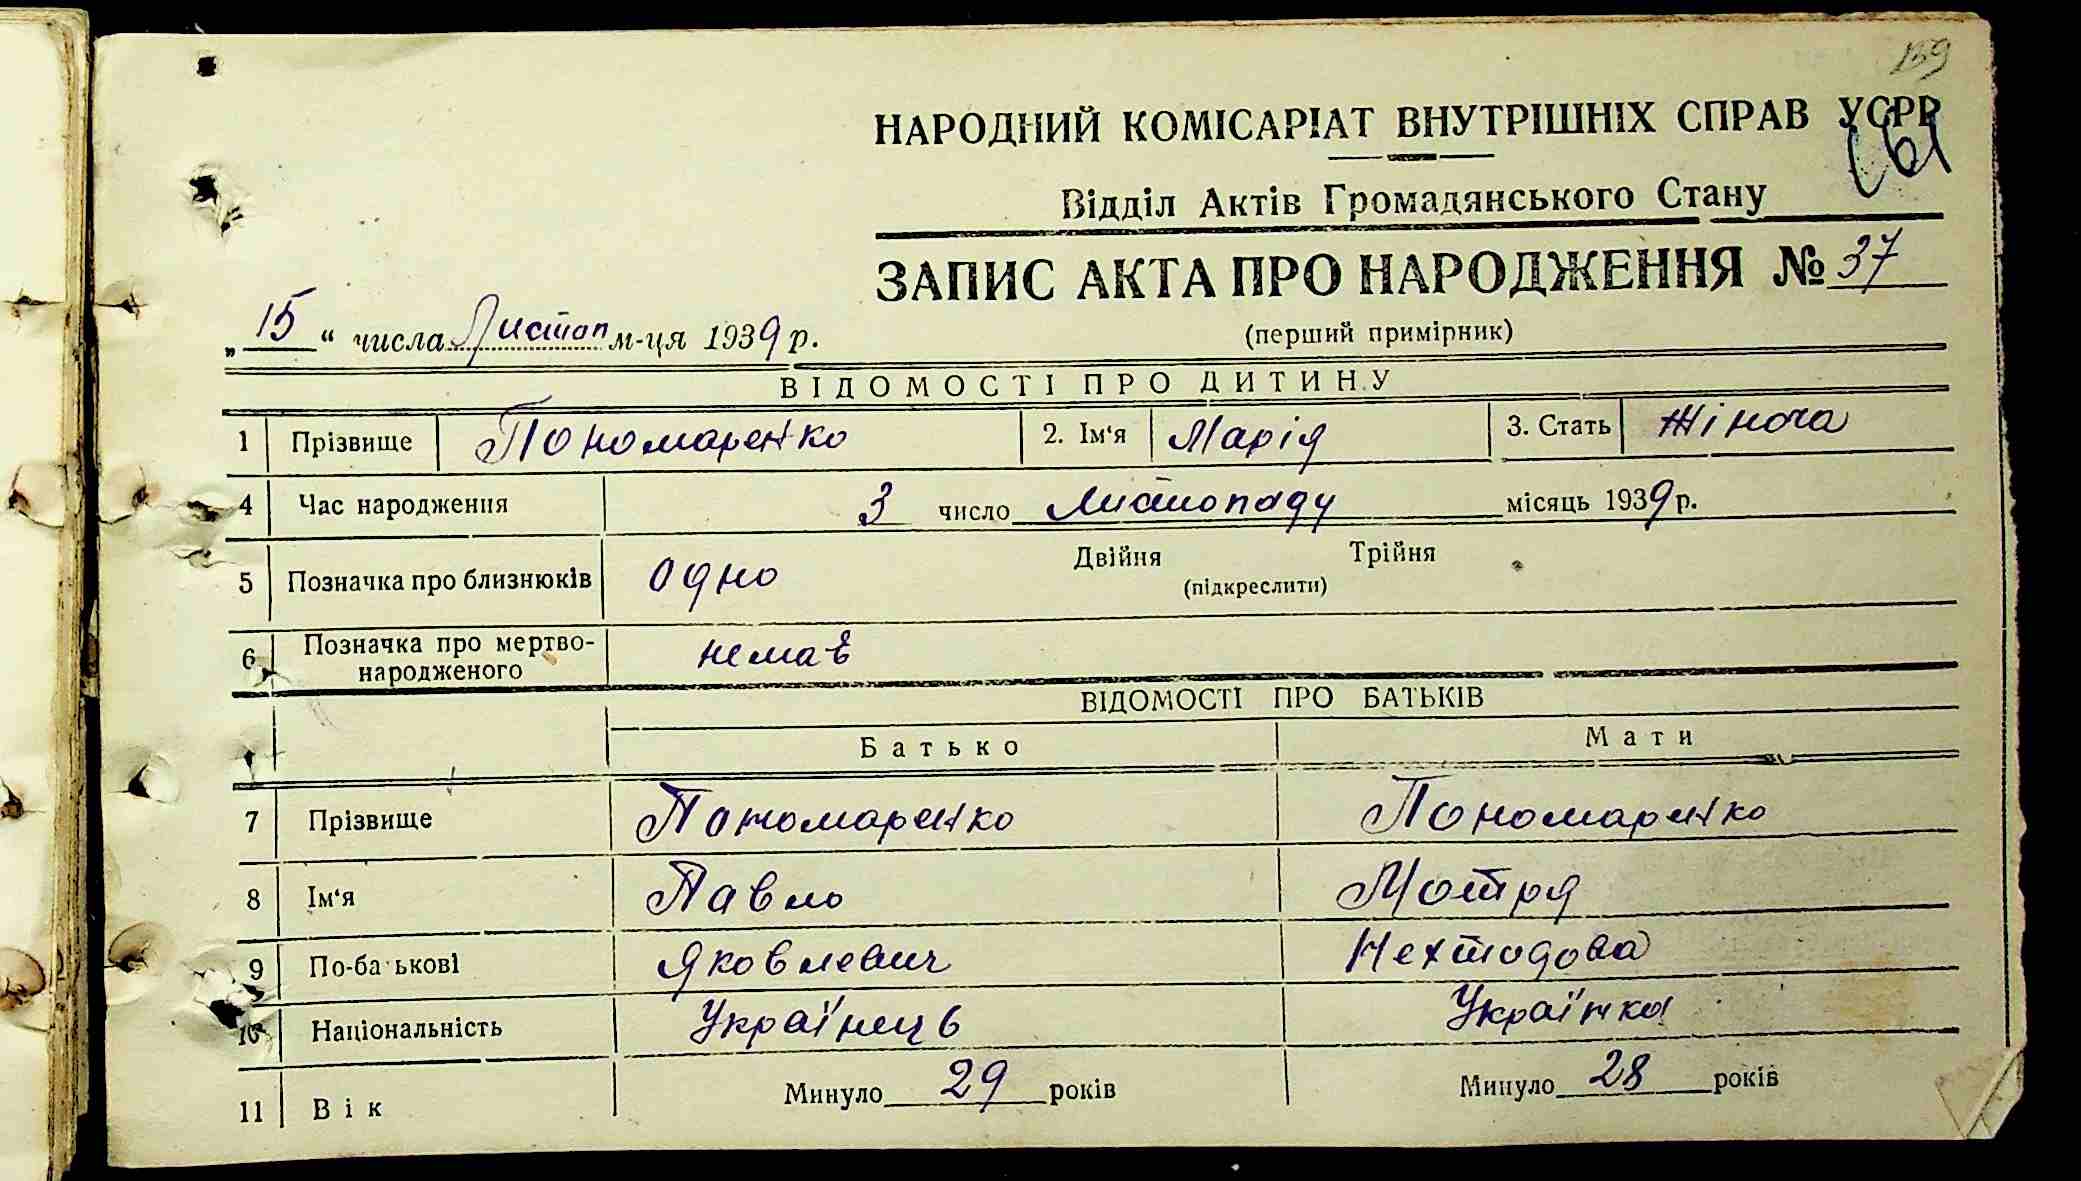 139
НАРОДНИЙ КОМІСАРІАТ ВНУТРІШНІХ СПРАВ УСРР
161
Відділ Актів Громадянського Стану
ЗАПИС АКТА ПРО НАРОДЖЕННЯ № 37
„15“ числа Листоп м-ця 1939 р.
(перший примірник)
ВІДОМОСТІ ПРО ДИТИНУ
1 Прізвище Пономаренко 2. Ім‘я Марія 3. Стать Жіноча
4 Час народження 3 число Листопаду місяць 1939 р.
5 Позначка про близнюків Одно Двійня Трійня
(підкреслити)
6 Позначка про мертво-
народженого немає
ВІДОМОСТІ ПРО БАТЬКІВ
Батько Мати
7 Прізвище Пономаренко Пономаренко
8 Ім‘я Павло Мотря
9 По-ба ькові Яковлевич
10 Національність Українець Українка
11 Вік Минуло 29 років Минуло 28 років